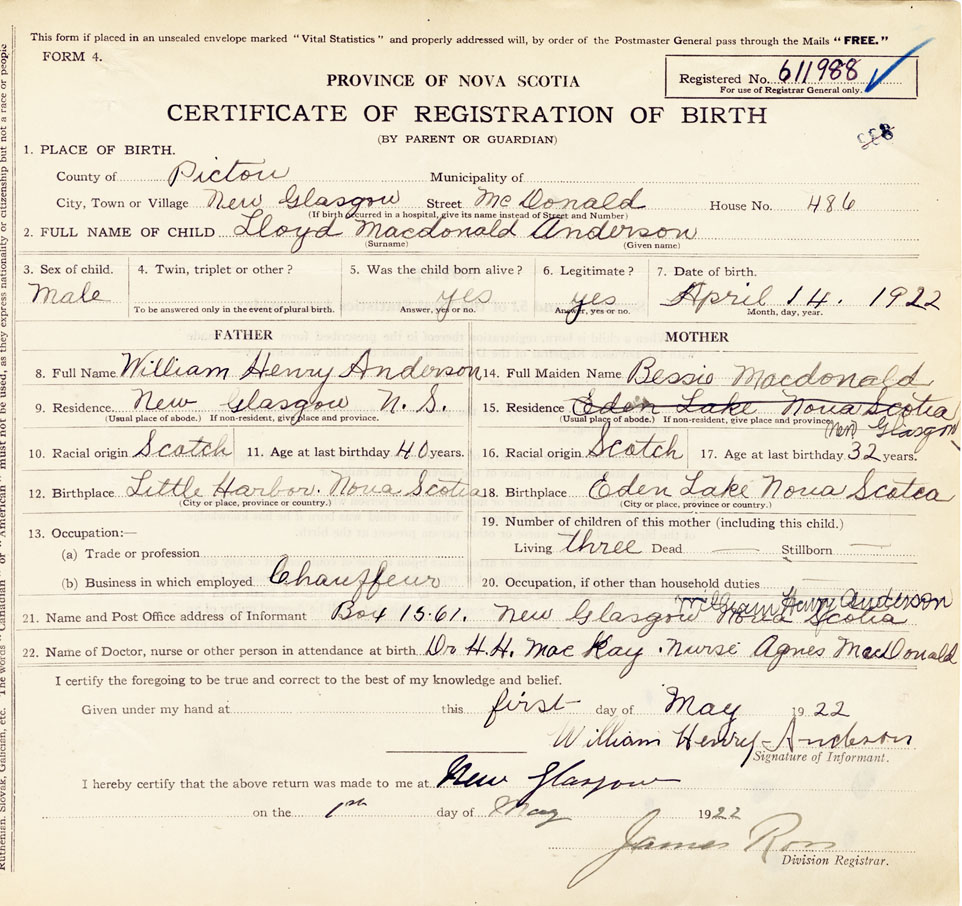 This form if placed in an unsealed envelope marked "Vital Statistics" and properly addressed will, by order of the Postmaster General pass through the Mails "FREE."
FORM 4.
PROVINCE OF NOVA SCOTIA
Registered No. 611988
For use of Registrar General only.
CERTIFICATE OF REGISTRATION OF BIRTH
(BY PARENT OR GUARDIAN)
1. PLACE OF BIRTH.
County of Pictou Municipality of
City, Town or Village New Glasgow Street McDonald House No. 486
(If birth occurred in a hospital, give its name instead of Street and Number)
2. FULL NAME OF CHILD Lloyd Macdonald Anderson
(Surname) (Given name)
3. Sex of child. 4. Twin, triplet or other? 5. Was the child born alive? 6. Legitimate? 7. Date of birth.
Male yes yes April 14. 1922
To be answered only in the event of plural birth. Answer, yes or no. Answer, yes or no. Month, day, year.
FATHER MOTHER
8. Full Name William Henry Anderson 14. Full Maiden Name Bessie Macdonald
9. Residence New Glasgow N. S. 15. Residence Eden Lake Nova Scotia
(Usual place of abode.) If non-resident, give place and province. (Usual place of abode.) If non-resident, give place and province
New Glasgow
10. Racial origin Scotch 11. Age at last birthday 40 years. 16. Racial origin Scotch 17. Age at last birthday 32 years.
12. Birthplace Little Harbor. Nova Scotia 18. Birthplace Eden Lake Nova Scotea
(City or place, province or country.) (City or place, province or country.)
13. Occupation:— 19. Number of children of this mother (including this child.)
(a) Trade or profession Living three Dead — Stillborn —
(b) Business in which employed Chauffeur 20. Occupation, if other than household duties
William Henry Anderson
21. Name and Post Office address of Informant Box 1561. New Glasgow Nova Scotia
22. Name of Doctor, nurse or other person in attendance at birth. Dr H.H. MacKay. Nurse Agnes MacDonald
I certify the foregoing to be true and correct to the best of my knowledge and belief.
Given under my hand at this first day of May 1922
William Henry Anderson
Signature of Informant.
I hereby certify that the above return was made to me at New Glasgow
on the 1st day of May 1922
James Ross
Division Registrar.
Ruthenian, Slovak, Galician, etc. The words "Canadian" or "American" must not be used, as they express nationality or citizenship but not a race or people